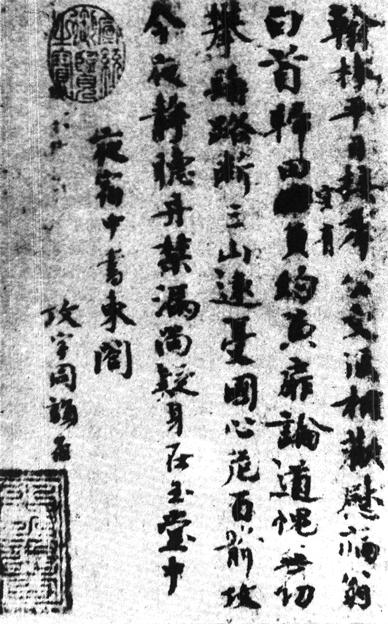 翰林平日接羣公文酒相歡慰病翁
白首歸田空有負約黃扉論道愧無功
攀髯路斷三山遠憂國心危百箭攻
今夜靜聽丹禁漏尚疑身在玉堂中
夜宿中書東閣
攻字同韻否